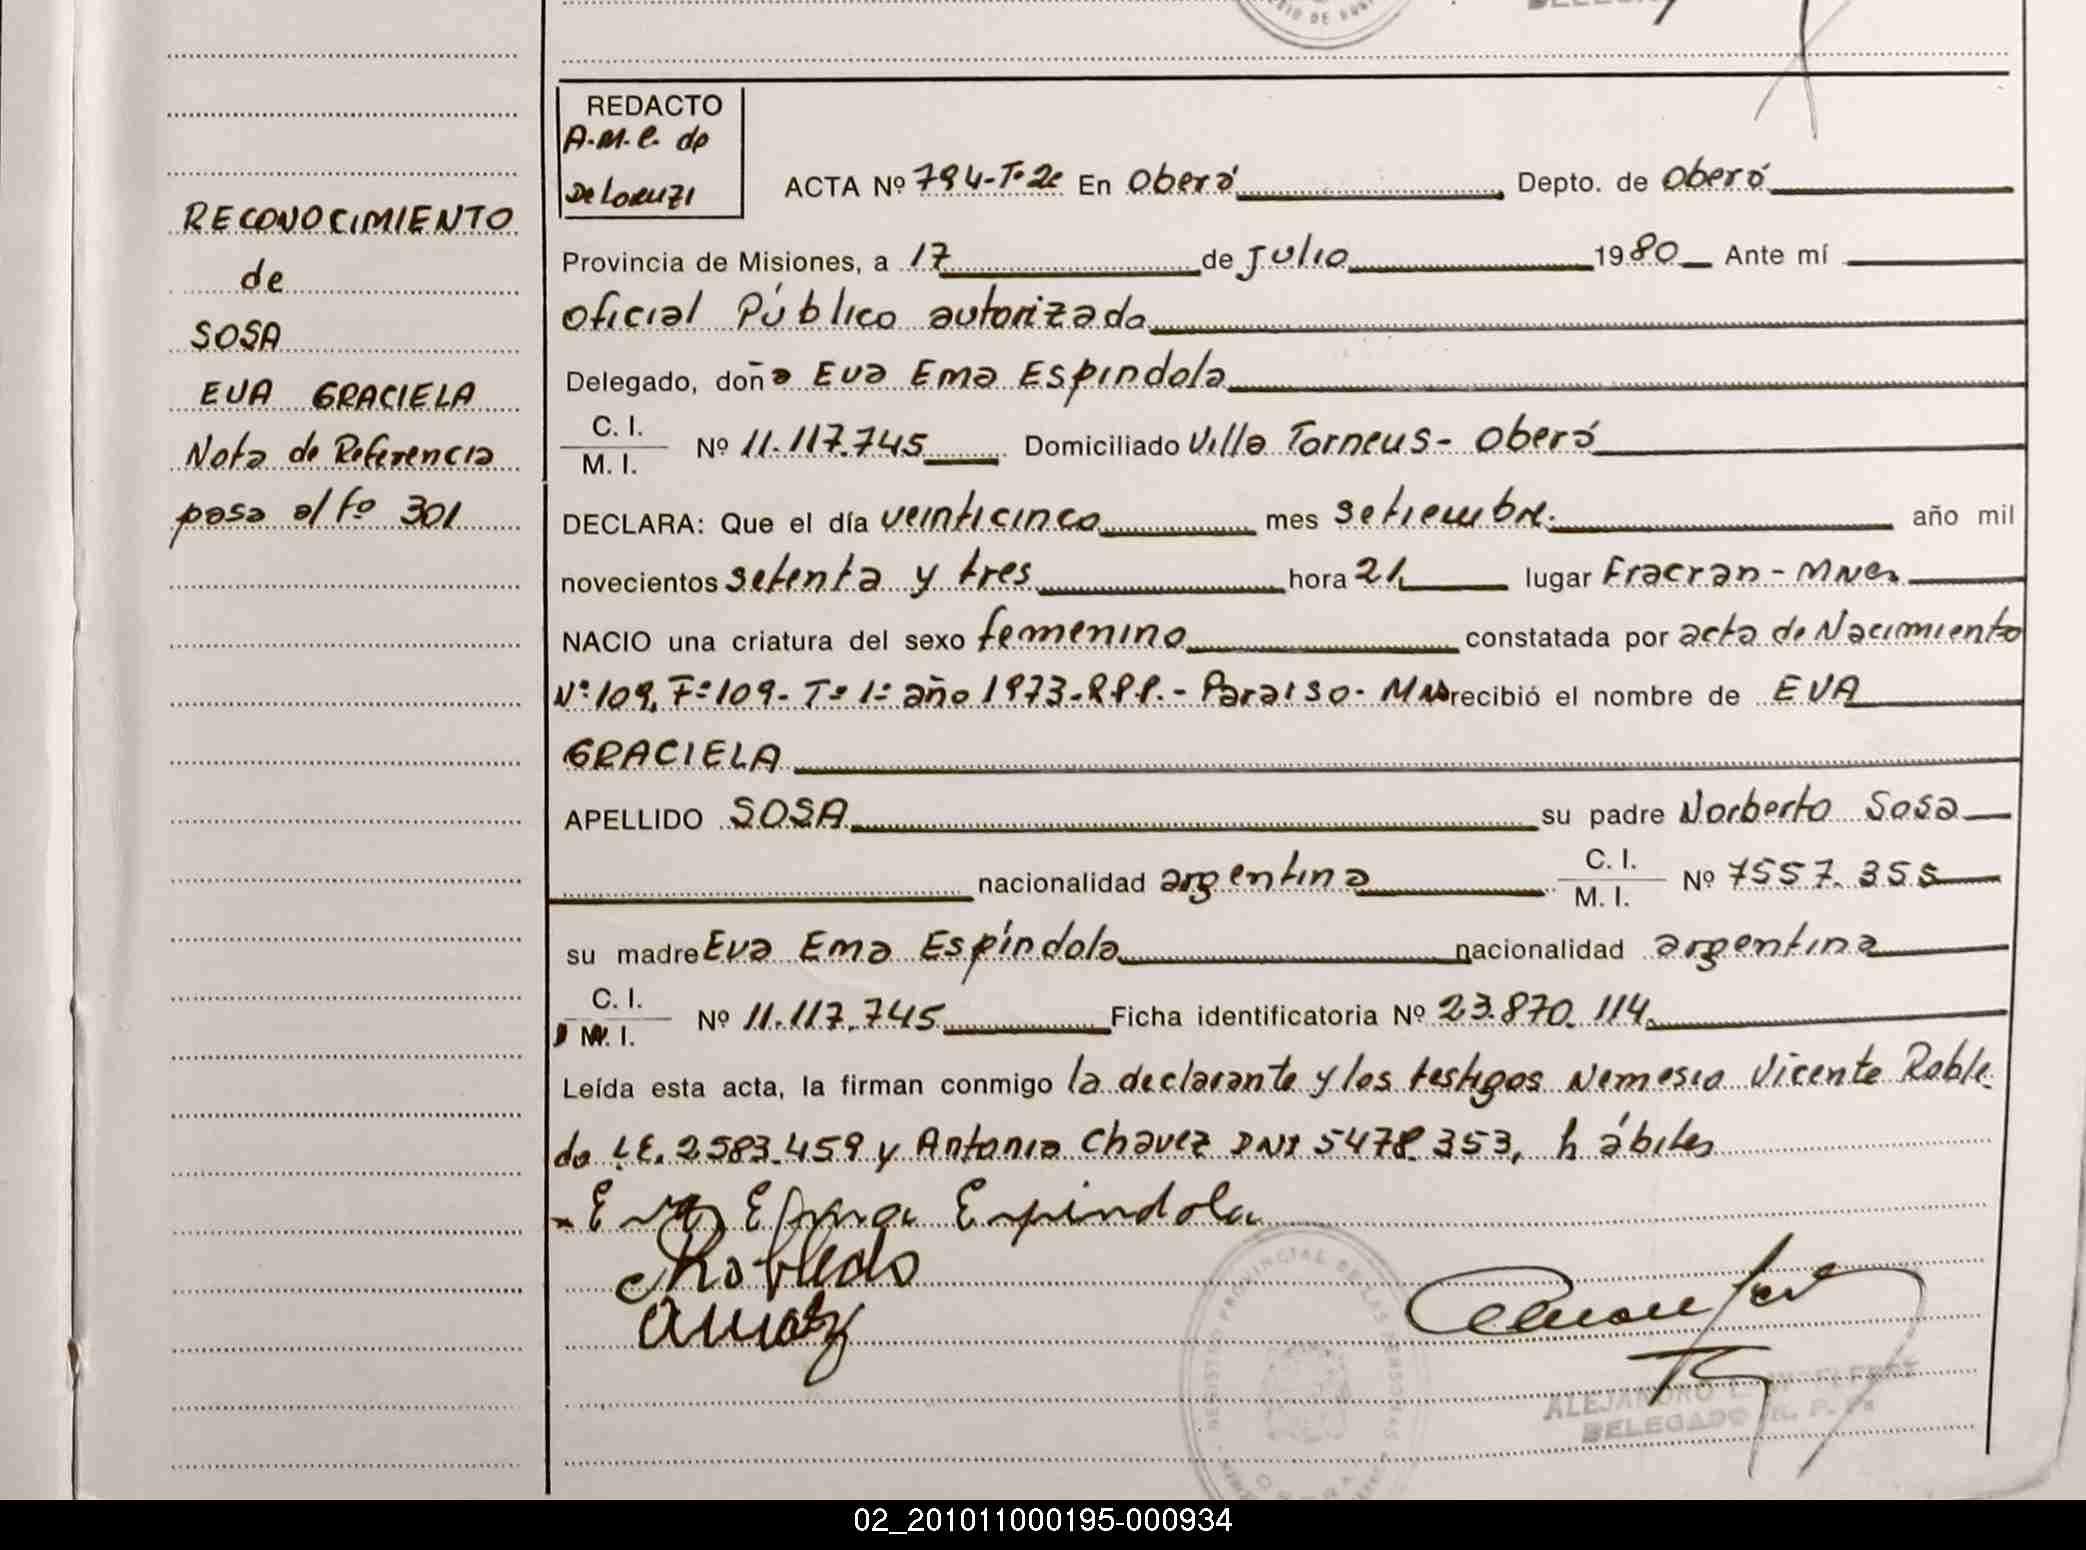 REDACTO
A.M.C. de
De Loruzi
ACTA Nº 794-Tº 2º En Oberá Depto. de Oberá
Provincia de Misiones, a 17 de Julio 1980 Ante mí
Oficial Público autorizado
Delegado, doña Eva Ema Espindola
C. I.
M. I.
Nº 11.117.745 Domiciliado Villa Torneus - Oberá
DECLARA: Que el día veinticinco mes setiembre. año mil
novecientos setenta y tres hora 21 lugar Fracran - Mnes
NACIO una criatura del sexo femenino constatada por acta de Nacimiento
Nº 109, Fº 109 - Tº 1º año 1973 - R.P.P. - Paraiso - Mns recibió el nombre de EVA
GRACIELA
APELLIDO SOSA su padre Norberto Sosa
nacionalidad argentina C. I.
M. I.
Nº 7557.355
su madre Eva Ema Espíndola nacionalidad argentina
C. I.
M. I.
Nº 11.117.745 Ficha identificatoria Nº 23.870.114.
Leída esta acta, la firman conmigo la declarante y los testigos Nemesio Vicente Roble
do L.E. 2.583.459 y Antonio Chavez DNI 5478.353, hábiles
Eva Ema Espindola
Robledo
RECONOCIMIENTO
de
SOSA
EVA GRACIELA
Nota de Referencia
pasa al fº 301
REGISTRO PROVINCIAL DE LAS PERSONAS
OBERA
ALEJANDRO
DELEGADO R. P. P.
02_201011000195-000934